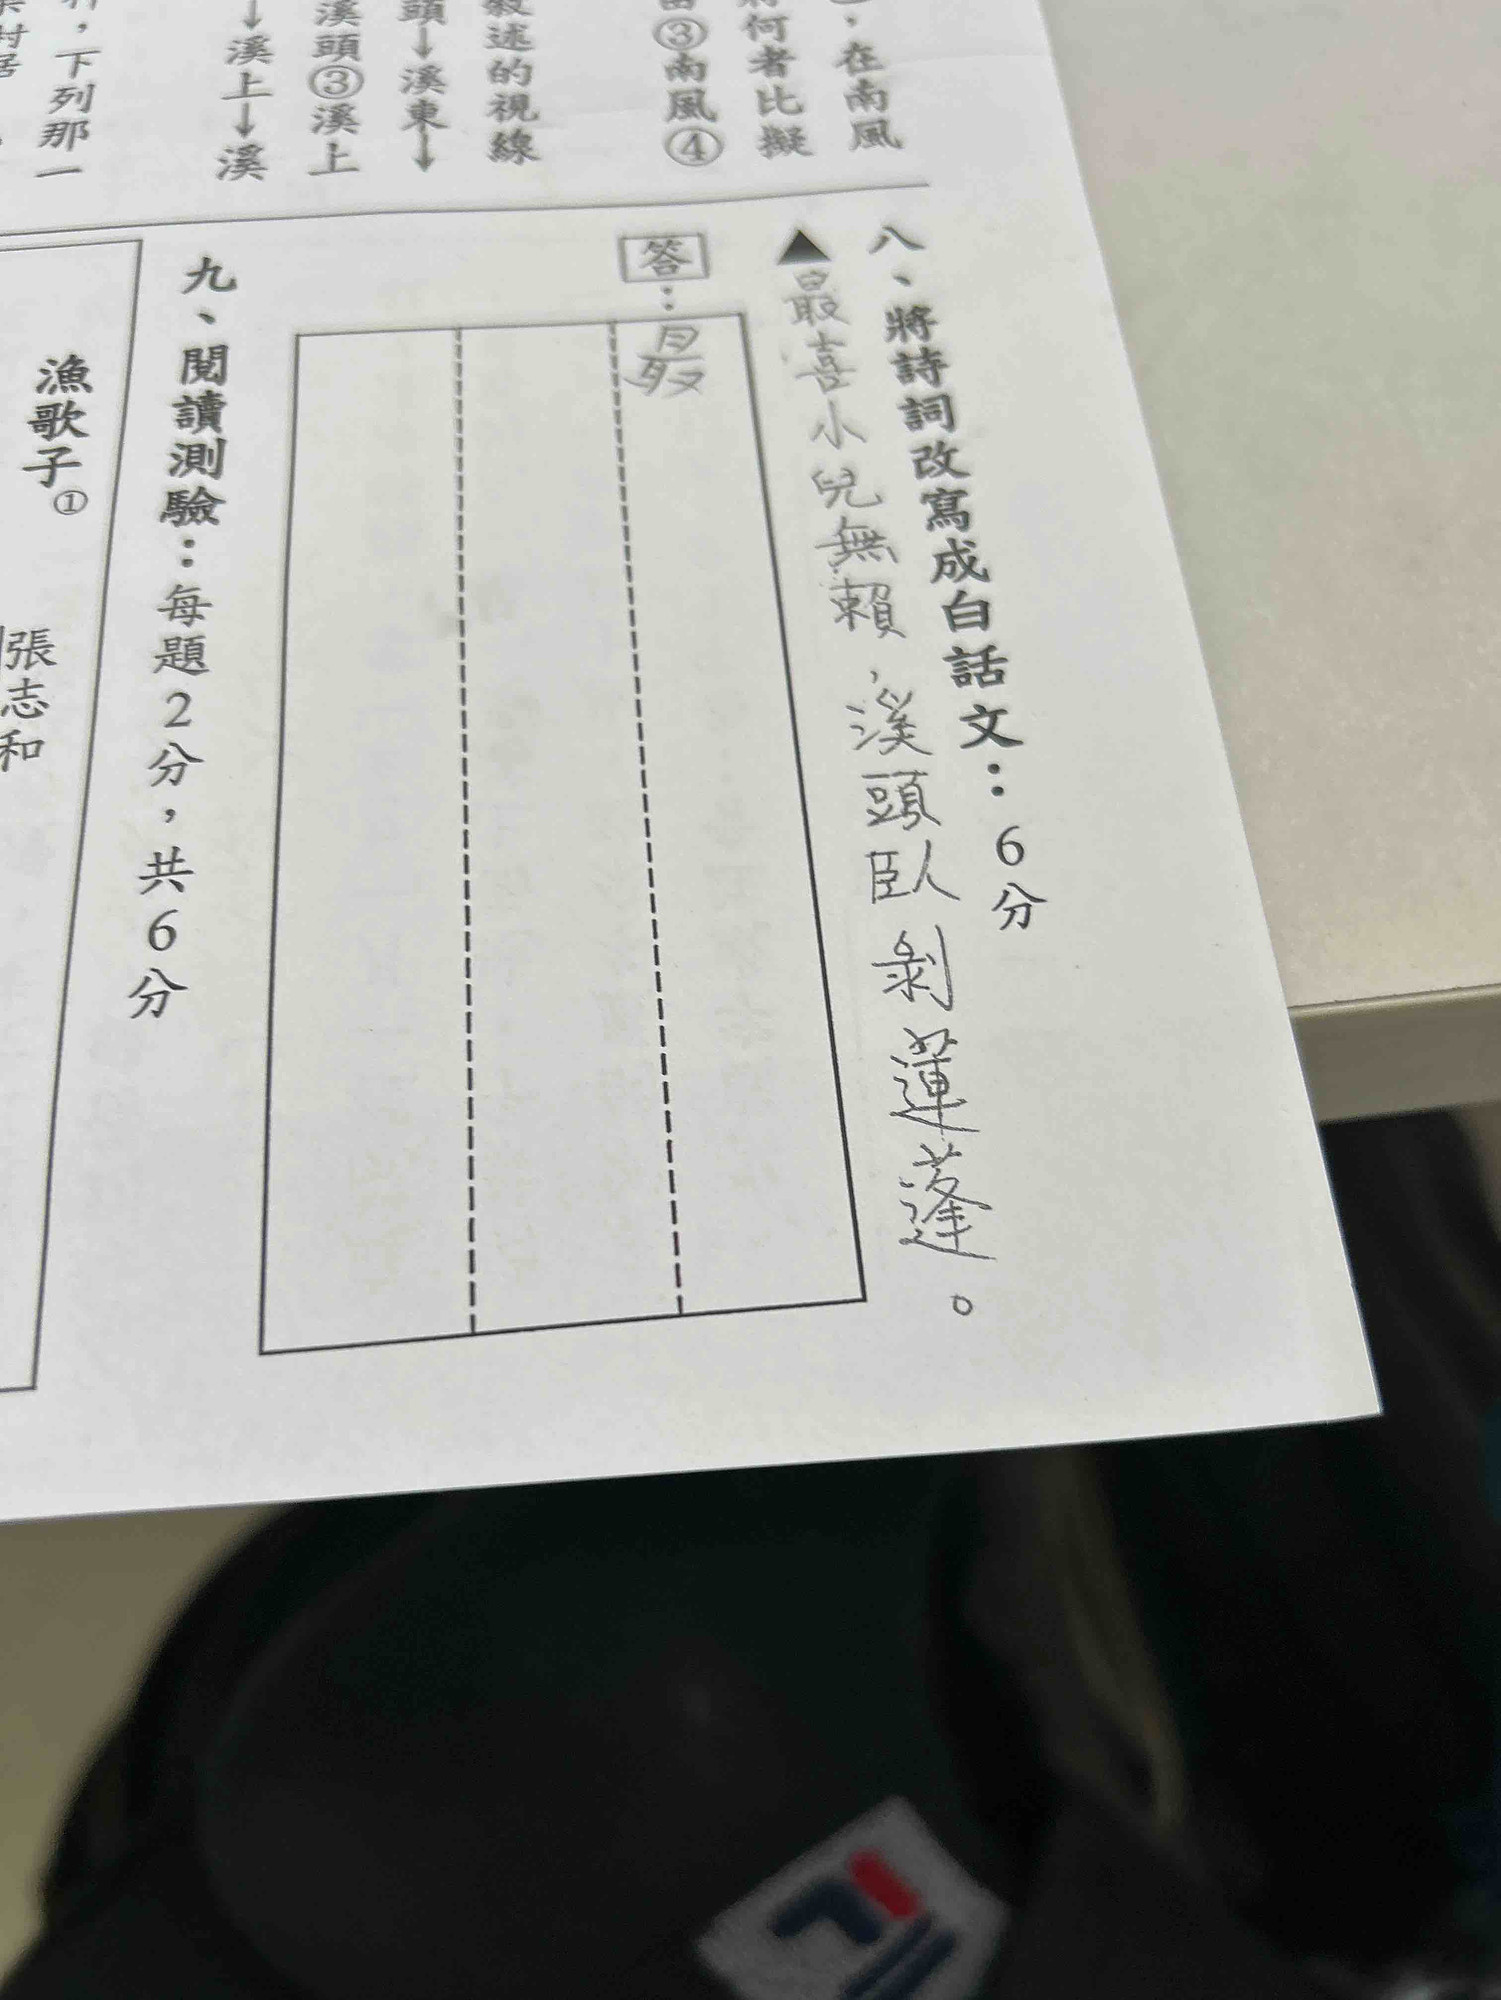 ，在南風
何者比擬
③南風④
敘述的視線
頭→溪東→
溪頭③溪上
→溪上→溪
，下列那一
村居
八、將詩詞改寫成白話文：6分
▲最喜小兒無賴，溪頭臥剝蓮蓬。
答：最
九、閱讀測驗：每題2分，共6分
漁歌子①
張志和